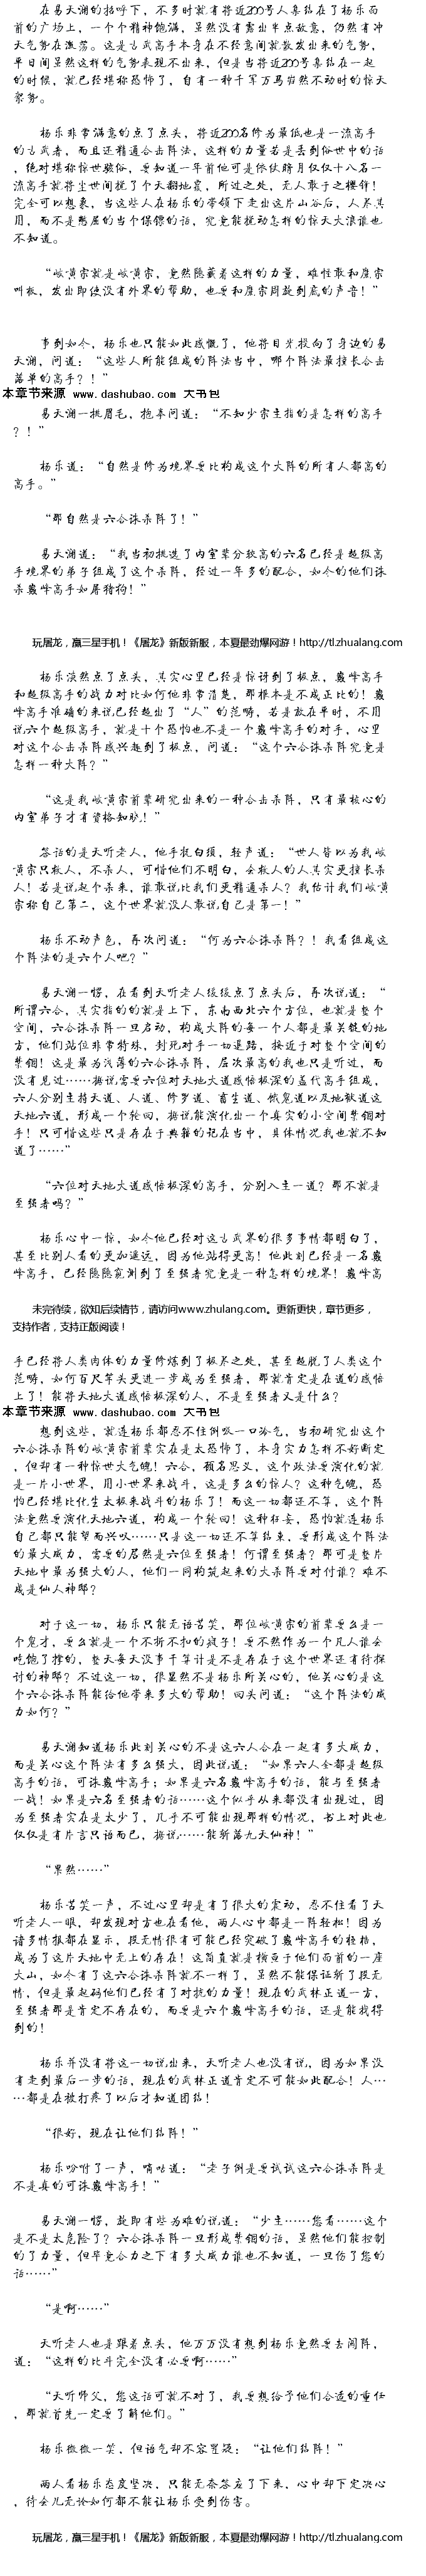 在易天澜的招呼下，不多时就有将近200号人集结在了杨乐面
前的广场上，一个个精神饱满，虽然没有露出半点敌意，仍然有冲
天气势在激荡。这是古武高手本身在不经意间就散发出来的气势，
平日间虽然这样的气势表现不出来，但是当将近200号集结在一起
的时候，就已经堪称恐怖了，自有一种千军万马岿然不动时的惊天
象势。
杨乐非常满意的点了点头，将近200名修为最低也是一流高手
的古武者，而且还精通合击阵法，这样的力量若是丢到俗世中的话
，绝对堪称惊世骇俗，要知道一年前他可是依仗胯月仅仅十八名一
流高手就将尘世间搅了个天翻地震，所过之处，无人敢于之樱锋！
完全可以想象，当这些人在杨乐的带领下走出这片山谷后，人尽其
用，而不是憋屈的当个保镖的话，究竟能搅动怎样的惊天大浪谁也
不知道。
“岐黄宗就是岐黄宗，竟然隐藏着这样的力量，难怪敢和魔宗
叫板，发出即使没有外界的帮助，也要和魔宗周旋到底的声音！”
事到如今，杨乐也只能如此感慨了，他将目光投向了身边的易
天澜，问道：“这些人所能组成的阵法当中，哪个阵法最擅长合击
落单的高手？！”
本章节来源 www.dashubao.com 大书包
易天澜一挑眉毛，抱拳问道：“不知少宗主指的是怎样的高手
？！”
杨乐道：“自然是修为境界要比构成这个大阵的所有人都高的
高手。”
“那自然是六合诛杀阵了！”
易天澜道：“我当初挑选了内室辈分较高的六名已经是超级高
手境界的弟子组成了这个杀阵，经过一年多的配合，如今的他们诛
杀巅峰高手如屠猪狗！”
玩屠龙，赢三星手机！《屠龙》新版新服，本夏最劲爆网游！http://tl.zhualang.com
杨乐淡然点了点头，其实心里已经是惊讶到了极点，巅峰高手
和超级高手的战力对比如何他非常清楚，那根本是不成正比的！巅
峰高手准确的来说已经超出了“人”的范畴，若是放在平时，不用
说六个超级高手，就是十个恐怕也不是一个巅峰高手的对手，心里
对这个合击杀阵感兴趣到了极点，问道：“这个六合诛杀阵究竟是
怎样一种大阵？”
“这是我岐黄宗前辈研究出来的一种合击杀阵，只有最核心的
内室弟子才有资格知晓！”
答话的是天听老人，他手抚白须，轻声道：“世人皆以为我岐
黄宗只救人，不杀人，可惜他们不明白，会救人的人其实更擅长杀
人！若是说起个杀来，谁敢说比我们更精通杀人？我估计我们岐黄
宗称自己第二，这个世界就没人敢说自己是第一！”
杨乐不动声色，再次问道：“何为六合诛杀阵？！我看组成这
个阵法的是六个人吧？”
易天澜一愣，在看到天听老人缓缓点了点头后，再次说道：“
所谓六合，其实指的的就是上下，东南西北六个方位，也就是整个
空间，六合诛杀阵一旦启动，构成大阵的每一个人都是最关键的地
方，他们站位非常特殊，封死对手一切退路，接近于对整个空间的
禁锢！这是最为浅薄的六合诛杀阵，层次最高的我也只是听过，而
没有见过……据说需要六位对天地大道感悟极深的盖代高手组成，
六人分别主持天道、人道、修罗道、畜生道、饿鬼道以及地狱道这
天地六道，形成一个轮回，据说能演化出一个真实的小空间禁锢对
手！只可惜这些只是存在于典籍的记在当中，具体情况我也就不知
道了……”
“六位对天地大道感悟极深的高手，分别入主一道？那不就是
至强者吗？”
杨乐心中一惊，如今他已经对这古武界的很多事情都明白了，
甚至比别人看的更加遥远，因为他站得更高！他此刻已经是一名巅
峰高手，已经隐隐窥测到了至强者究竟是一种怎样的境界！巅峰高
未完待续，欲知后续情节，请访问www.zhulang.com。更新更快，章节更多，
支持作者，支持正版阅读！
手已经将人类肉体的力量修炼到了极尽之处，甚至超脱了人类这个
范畴，如何百尺竿头更进一步成为至强者，那就肯定是在道的感悟
上了！能将天地大道感悟极深的人，不是至强者又是什么？
本章节来源 www.dashubao.com 大书包
想到这些，就连杨乐都忍不住倒吸一口冷气，当初研究出这个
六合诛杀阵的岐黄宗前辈实在是太恐怖了，本身实力怎样不好断定
，但却有一种惊世大气魄！六合，顾名思义，这个政法要演化的就
是一片小世界，用小世界来战斗，这是多么的惊人？这种气魄，恐
怕已经堪比化生太极来战斗的杨乐了！而这一切都还不算，这个阵
法竟然要演化天地六道，构成一个轮回！这种狂妄，恐怕就连杨乐
自己都只能望而兴叹……只是这一切还不算结束，要形成这个阵法
的最大威力，需要的居然是六位至强者！何谓至强者？那可是整片
天地中最为强大的人，他们一同构筑起来的大杀阵要对付谁？难不
成是仙人神邸？
对于这一切，杨乐只能无语苦笑，那位岐黄宗的前辈要么是一
个鬼才，要么就是一个不折不扣的疯子！要不然作为一个凡人谁会
吃饱了撑的，整天每天没事干算计是不是存在于这个世界还有待探
讨的神邸？不过这一切，很显然不是杨乐所关心的，他关心的是这
个六合诛杀阵能给他带来多大的帮助！回头问道：“这个阵法的威
力如何？”
易天澜知道杨乐此刻关心的不是这六人合在一起有多大威力，
而是关心这个阵法有多么强大，因此说道：“如果六人全都是超级
高手的话，可诛巅峰高手；如果是六名巅峰高手的话，能与至强者
一战！如果是六名至强者的话……这个似乎从来都没有出现过，因
为至强者实在是太少了，几乎不可能出现那样的情况，书上对此也
仅仅是有片言只语而已，据说……能斩落九天仙神！”
“果然……”
杨乐苦笑一声，不过心里却是有了很大的震动，忍不住看了天
听老人一眼，却发现对方也在看他，两人心中都是一阵轻松！因为
诸多情报都在显示，段无情很有可能已经突破了巅峰高手的桎梏，
成为了这片天地中无上的存在！这简直就是横亘于他们面前的一座
大山，如今有了这六合诛杀阵就不一样了，虽然不能保证斩了段无
情，但是最起码他们已经有了对抗的力量！现在的武林正道一方，
至强者那是肯定不存在的，而要是六个巅峰高手的话，还是能找得
到的！
杨乐并没有将这一切说出来，天听老人也没有说，因为如果没
有走到最后一步的话，现在的武林正道肯定不可能如此配合！人…
…都是在被打疼了以后才知道团结！
“很好，现在让他们结阵！”
杨乐吩咐了一声，嘀咕道：“老子倒是要试试这六合诛杀阵是
不是真的可诛巅峰高手！”
易天澜一愣，旋即有些为难的说道：“少主……您看……这个
是不是太危险了？六合诛杀阵一旦形成禁锢的话，虽然他们能控制
的了力量，但毕竟合力之下有多大威力谁也不知道，一旦伤了您的
话……”
“是啊……”
天听老人也是跟着点头，他万万没有想到杨乐竟然要去闯阵，
道：“这样的比斗完全没有必要啊……”
“天听师父，您这话可就不对了，我要想给予他们合适的重任
，那就首先一定要了解他们。”
杨乐微微一笑，但语气却不容置疑：“让他们结阵！”
两人看杨乐态度坚决，只能无奈答应了下来，心中却下定决心
，待会儿无论如何都不能让杨乐受到伤害。
玩屠龙，赢三星手机！《屠龙》新版新服，本夏最劲爆网游！http://tl.zhualang.com